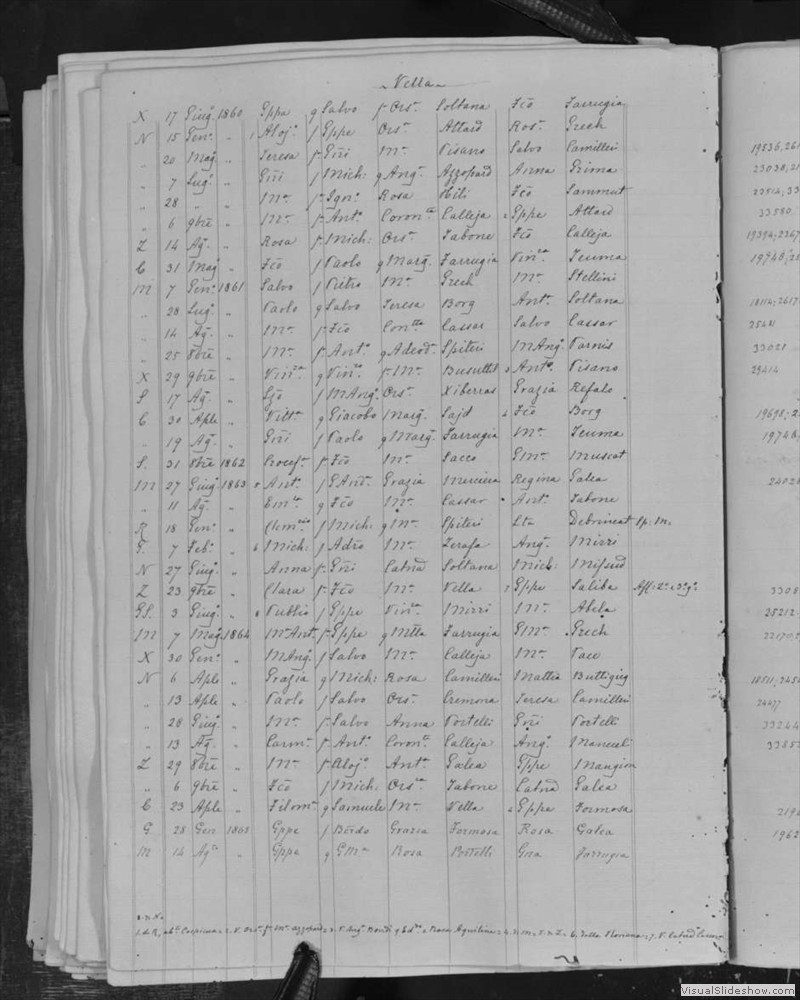 Vella
X 17 Giug. 1860 Gppa g Salvo f Ors. Soltana Fco Farrugia
N 15 Gen. " 1 Aloj. f Gppe Ors. Attard Ros. Grech
" 20 Mag. " Teresa f Gñi M. Pisano Salvo Camilleri
" 7 Lug. " Gñi f Mich: g Ang. Azzopard Anna Grima
" 28 " " M. f Ign. Rosa Hili Fco Sammut
" 6 9bre " M. f Ant. Coron. Calleja 2 Gppe Attard
Z 14 Ag. " Rosa f Mich: Ors. Tabone Fco Calleja
C 31 Mag " Fco f Paolo g Marg. Farrugia Vin. Teuma
M 7 Gen. 1861 Salvo f Pietro M. Grech M. Stellini
" 28 Lug. " Paolo g Salvo Teresa Borg Ant. Soltana
" 14 Ag. " M. f Fco Con. Cassar Salvo Cassar
" 25 8bre " M. f Ant. g Adeod. Spiteri M Ang. Parnis
X 29 9bre " Vin. g Vin. f M. Busuttil 3 Ant. Pisano
S 17 Ag. " f M Ang. Ors. Xiberras Grazia Refalo
C 30 Aple " g Giacobo Marg. Sajd 4 Fco Borg
" 19 Ag. " Gñi f Paolo g Marg. Farrugia M. Teuma
S. 31 8bre 1862 f Fco M. Sacco G M. Muscat
M 27 Giug. 1863 5 Ant. f G And. Grazia Mercieca Regina Galea
" 11 Ag. " Em. g Fco M. Cassar Ant. Tabone
R 18 Gen. " Clem. f Mich: g M. Spiteri
G. 7 Feb. " 6 Mich: f Adrō M. Zerafa Ang. Mizzi
N 27 Giug. " Anna f Gñi Catna Soltana Mich: Mifsud
Z 23 9bre " Clara f Fco M. Vella 7 Gppe Saliba Aff: 2. e 3. g.
GS. 3 Giug. " 8 Publio f Gppe Vin. Mizzi M. Abela
M 7 Mag. 1864 M Ant. f Gppe g Farrugia G M. Grech
X 30 Gen. " M Ang. f Salvo M. Calleja M. Pace
N 6 Aple " Grazia g Mich: Rosa Camilleri Mattia Buttigieg
" 13 Aple " Paolo f Salvo Ors. Cremona Teresa Camilleri
" 28 Giug. " M. f Salvo Anna Portelli Gñi Portelli
" 13 Ag. " Carm. f Ant. Coron. Calleja Ang. Manueli
Z 29 8bre " M. f Aloj. Ant. Galea Gppe Mangion
" 6 9bre " Fco f Mich: Ors. Tabone Catna Galea
C 23 Aple " Filom. g Samuele M. Vella Gppe Formosa
G. 28 Gen 1865 Gppe f Grazia Formosa Rosa Galea
M 14 Ag. " Gppa g G M. Rosa Portelli Farrugia
19536, 26
23038, 21
33580
19748, 21
18114, 2617
25481
33028
29414
19698, 2
19748,
24028
3308
25212
22170
18511, 245
24477
33244
3385
219
1962
VisualSlideshow.com